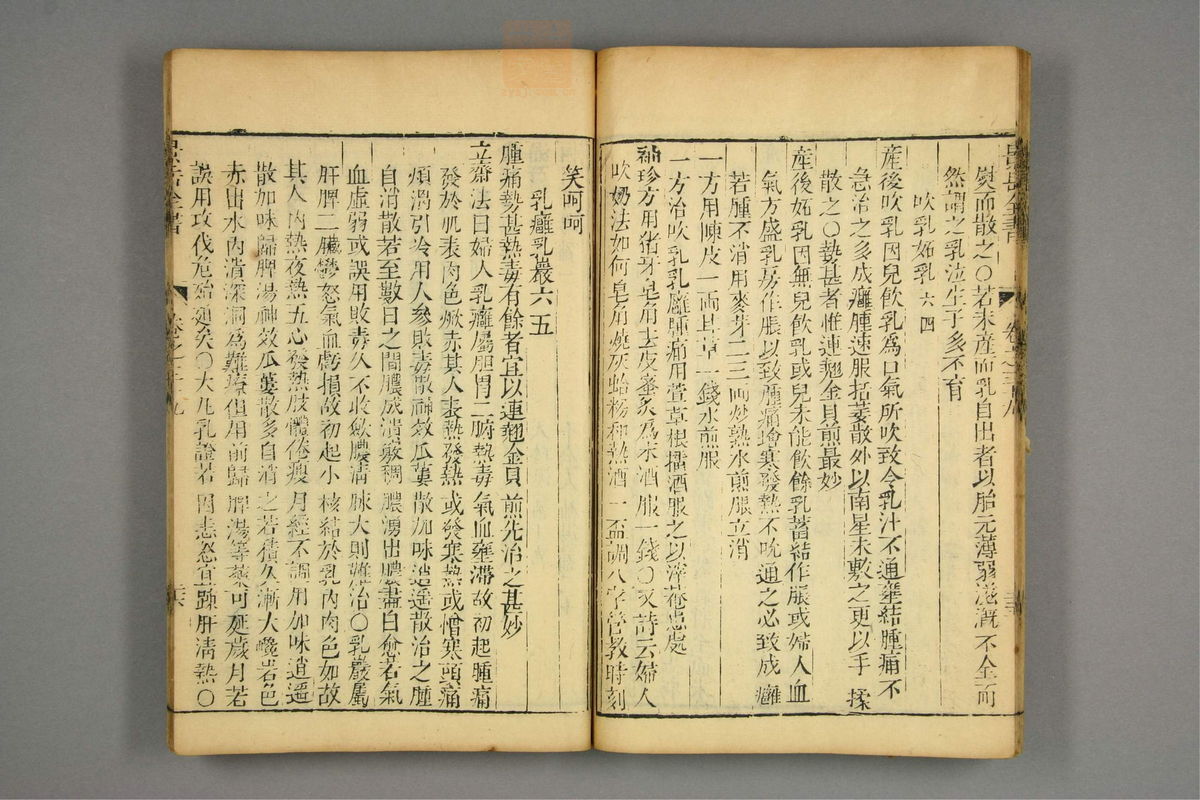 熨而散之〇若未産而乳自出者以胎元薄弱滋溉不全而
然謂之乳泣生子多不育
吹乳妬乳 六四
産後吹乳因兒飲乳為口氣所吹致令乳汁不通壅結腫痛不
急治之多成癰腫速服括蔞散外以南星末敷之更以手揉
散之〇勢甚者惟連翹金貝煎最妙
産後妬乳因無兒飲乳或兒未能飲餘乳蓄結作脹或婦人血
氣方盛乳房作脹以致腫痛壮寒發熱不吮通之必致成癰
若腫不消用麥芽二三兩炒熟水煎服立消
一方用陳皮一兩甘草一錢水煎服
一方治吹乳乳癰腫痛用萱草根擂酒服之以滓菴患處
袖珍方用猪牙皂角去皮蜜炙為末酒服一錢〇又詩云婦人
吹奶法如何皂角燒灰蛤粉和熱酒一盃調八字管教時刻
笑呵呵
乳癰乳巖六五
腫痛勢甚熱毒有餘者宜以連翹金貝煎先治之甚妙
立齋法曰婦人乳癰屬胆胃二腑熱毒氣血壅滯故初起腫痛
發於肌表肉色焮赤其人表熱發熱或發寒熱或憎寒頭痛
煩渴引冷用人參敗毒散神效瓜蔞散加味逍遥散治之腫
自消散若至數日之間膿成潰竅稠膿湧出膿盡自愈若氣
血虛弱或誤用敗毒久不收斂膿清脉大則難治〇乳巖屬
肝脾二臟鬱怒氣血虧損故初起小核結於乳內肉色如故
其人內熱夜熱五心發熱肢體倦瘦月經不調用加味逍遥
散加味歸脾湯神效瓜蔞散多自消之若積久漸大巉岩色
赤出水內潰深洞為難療但用前歸脾湯等藥可延歲月若
誤用攻伐危殆廹矣〇大凡乳證若因恚怒宜踈肝清熱〇